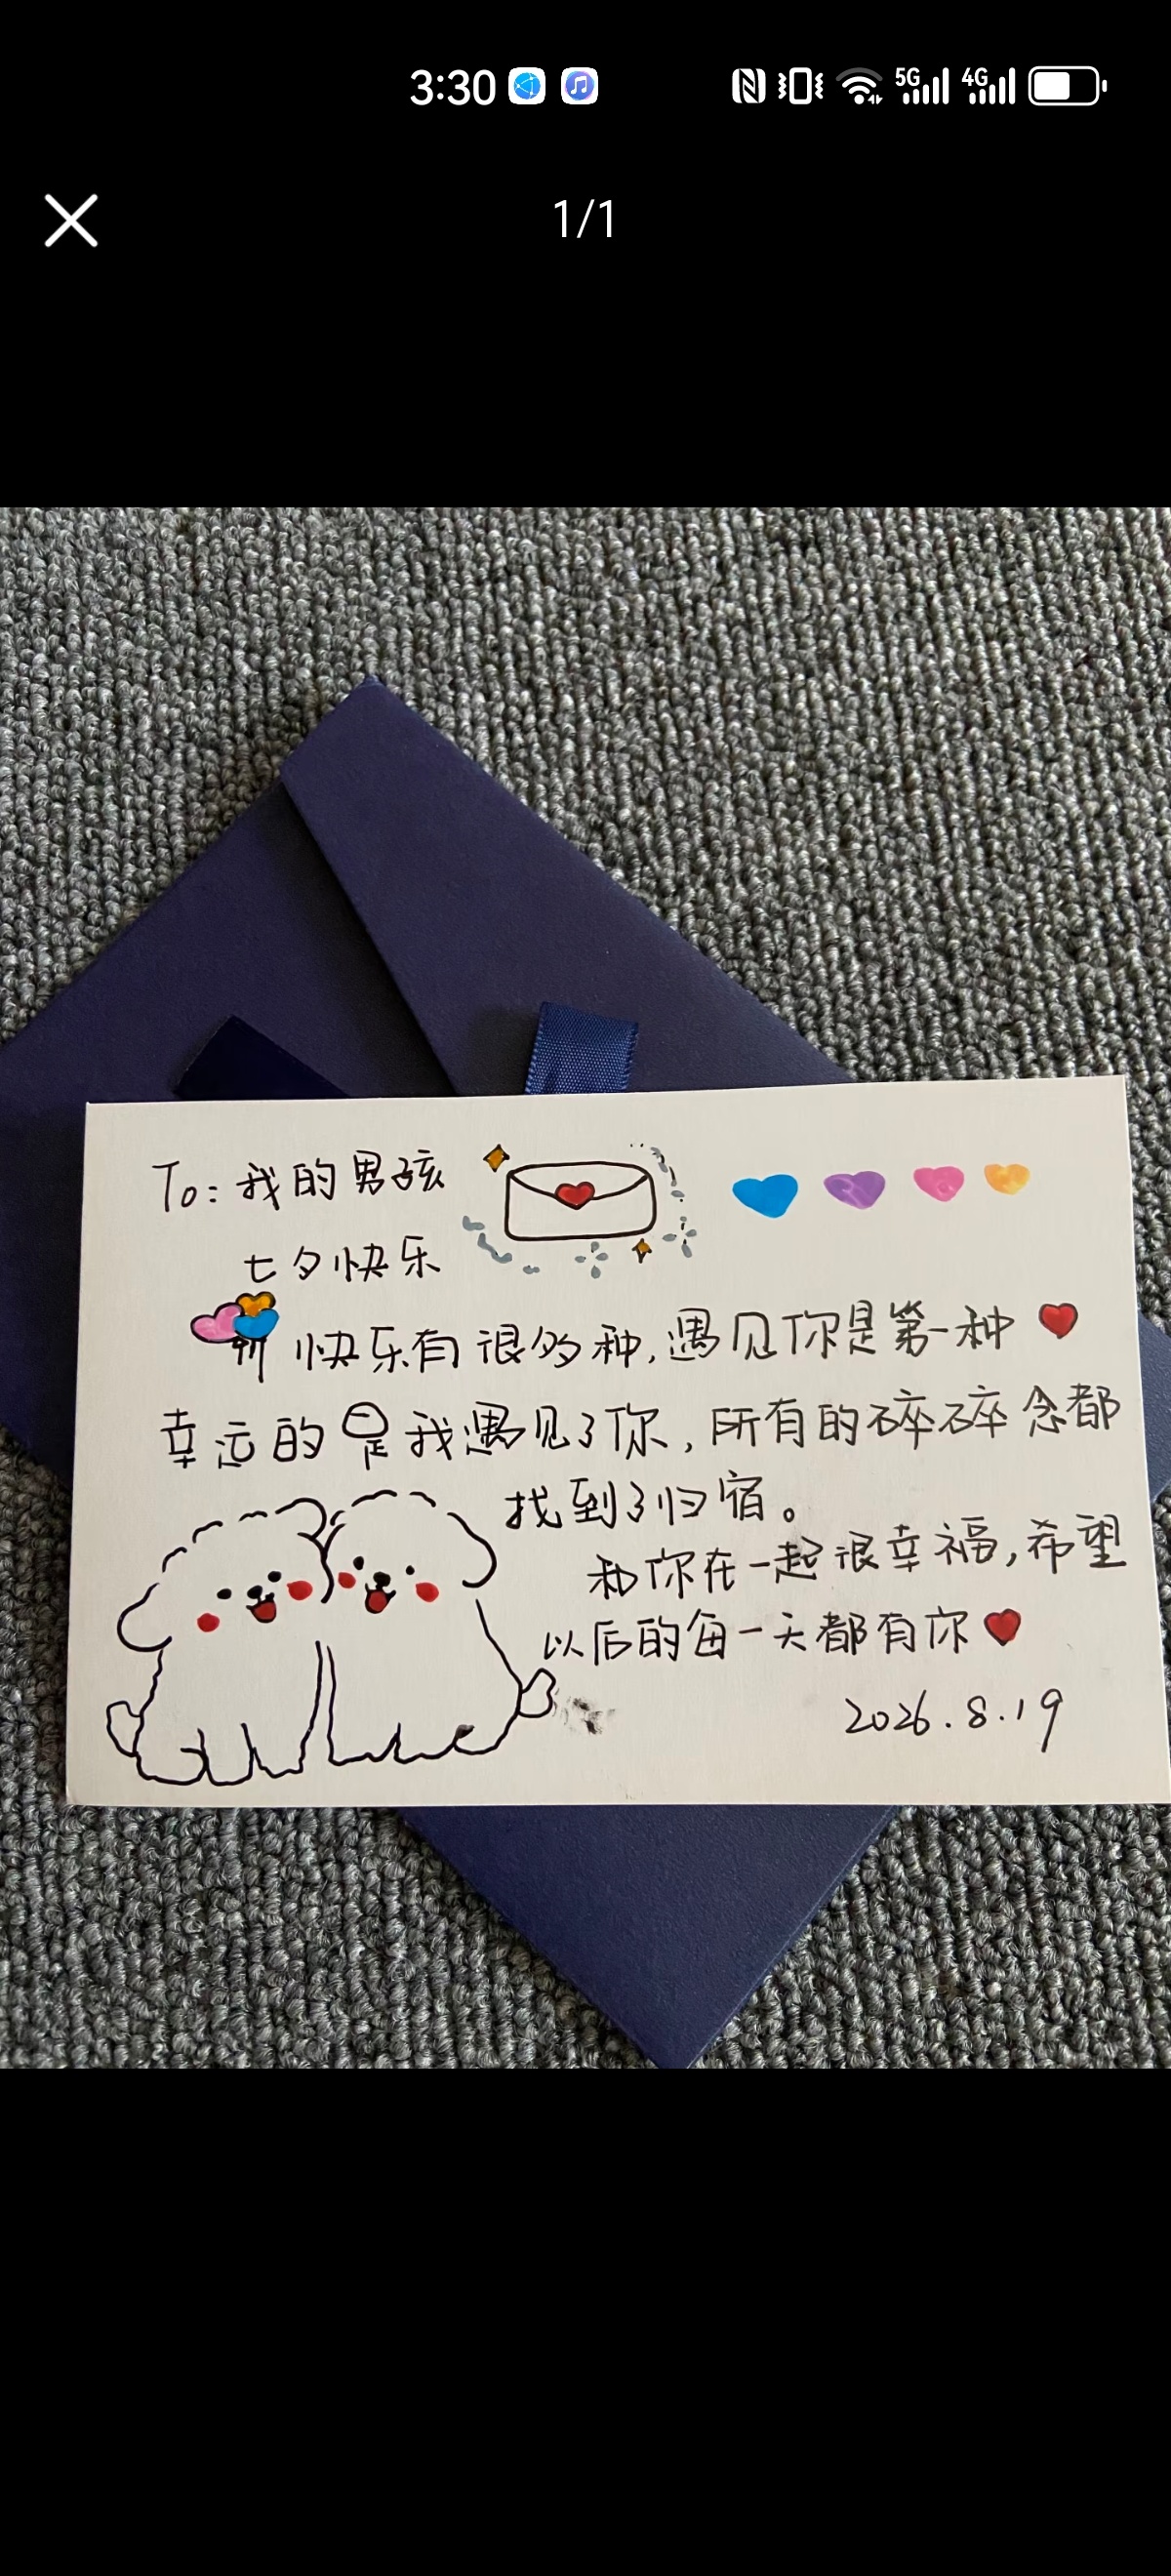 3:30
5G
4G
1/1
To: 我的男孩
七夕快乐
快乐有很多种,遇见你是第一种
幸运的是我遇见了你,所有的碎碎念都
找到了归宿。
和你在一起很幸福,希望
以后的每一天都有你
2026.8.19